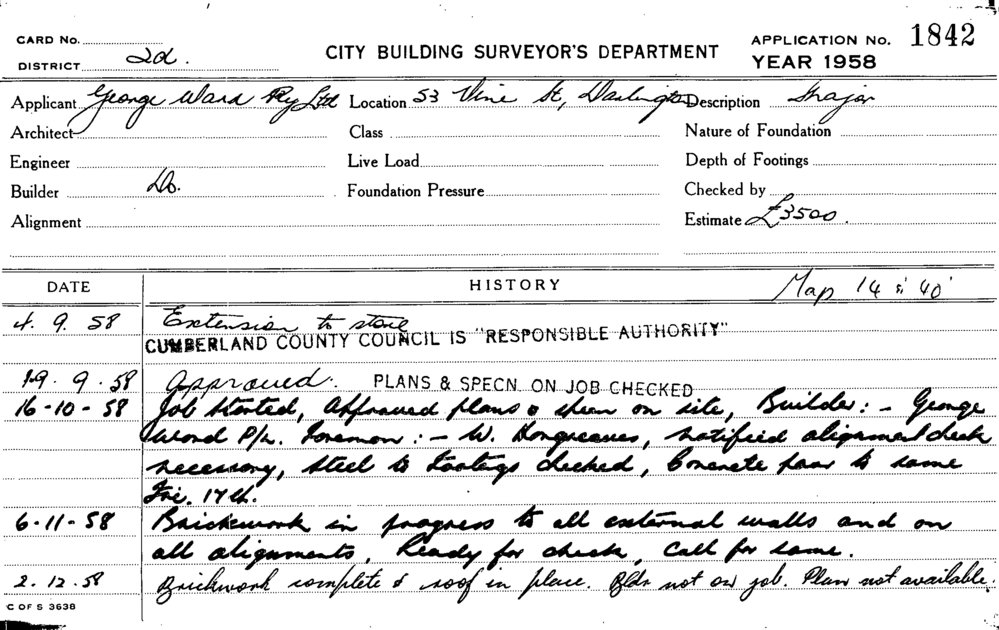 CARD No.
DISTRICT 2d.
CITY BUILDING SURVEYOR'S DEPARTMENT
APPLICATION No. 1842
YEAR 1958
Applicant George Ward Pty Ltd Location 53 Vine St, Darlington Description Major
Architect Class Nature of Foundation
Engineer Live Load Depth of Footings
Builder Do. Foundation Pressure Checked by
Alignment Estimate £3500.
DATE HISTORY Map 14 & 40'
4. 9. 58 Extension to store
CUMBERLAND COUNTY COUNCIL IS "RESPONSIBLE AUTHORITY"
19. 9. 58 Approved. PLANS & SPECN. ON JOB CHECKED
16-10-58 Job started, Approved plans & specn on site, Builder:- George
Ward P/L. Foreman:- W. Hongreaves, notified alignment check
necessary, steel to footings checked, Concrete pour to same
Fri. 17th.
6-11-58 Brickwork in progress to all external walls and on
all alignments, Ready for check, Call for same.
2.12.58 Brickwork complete & roof in place. Bldr not on job. Plan not available.
C OF S 3638